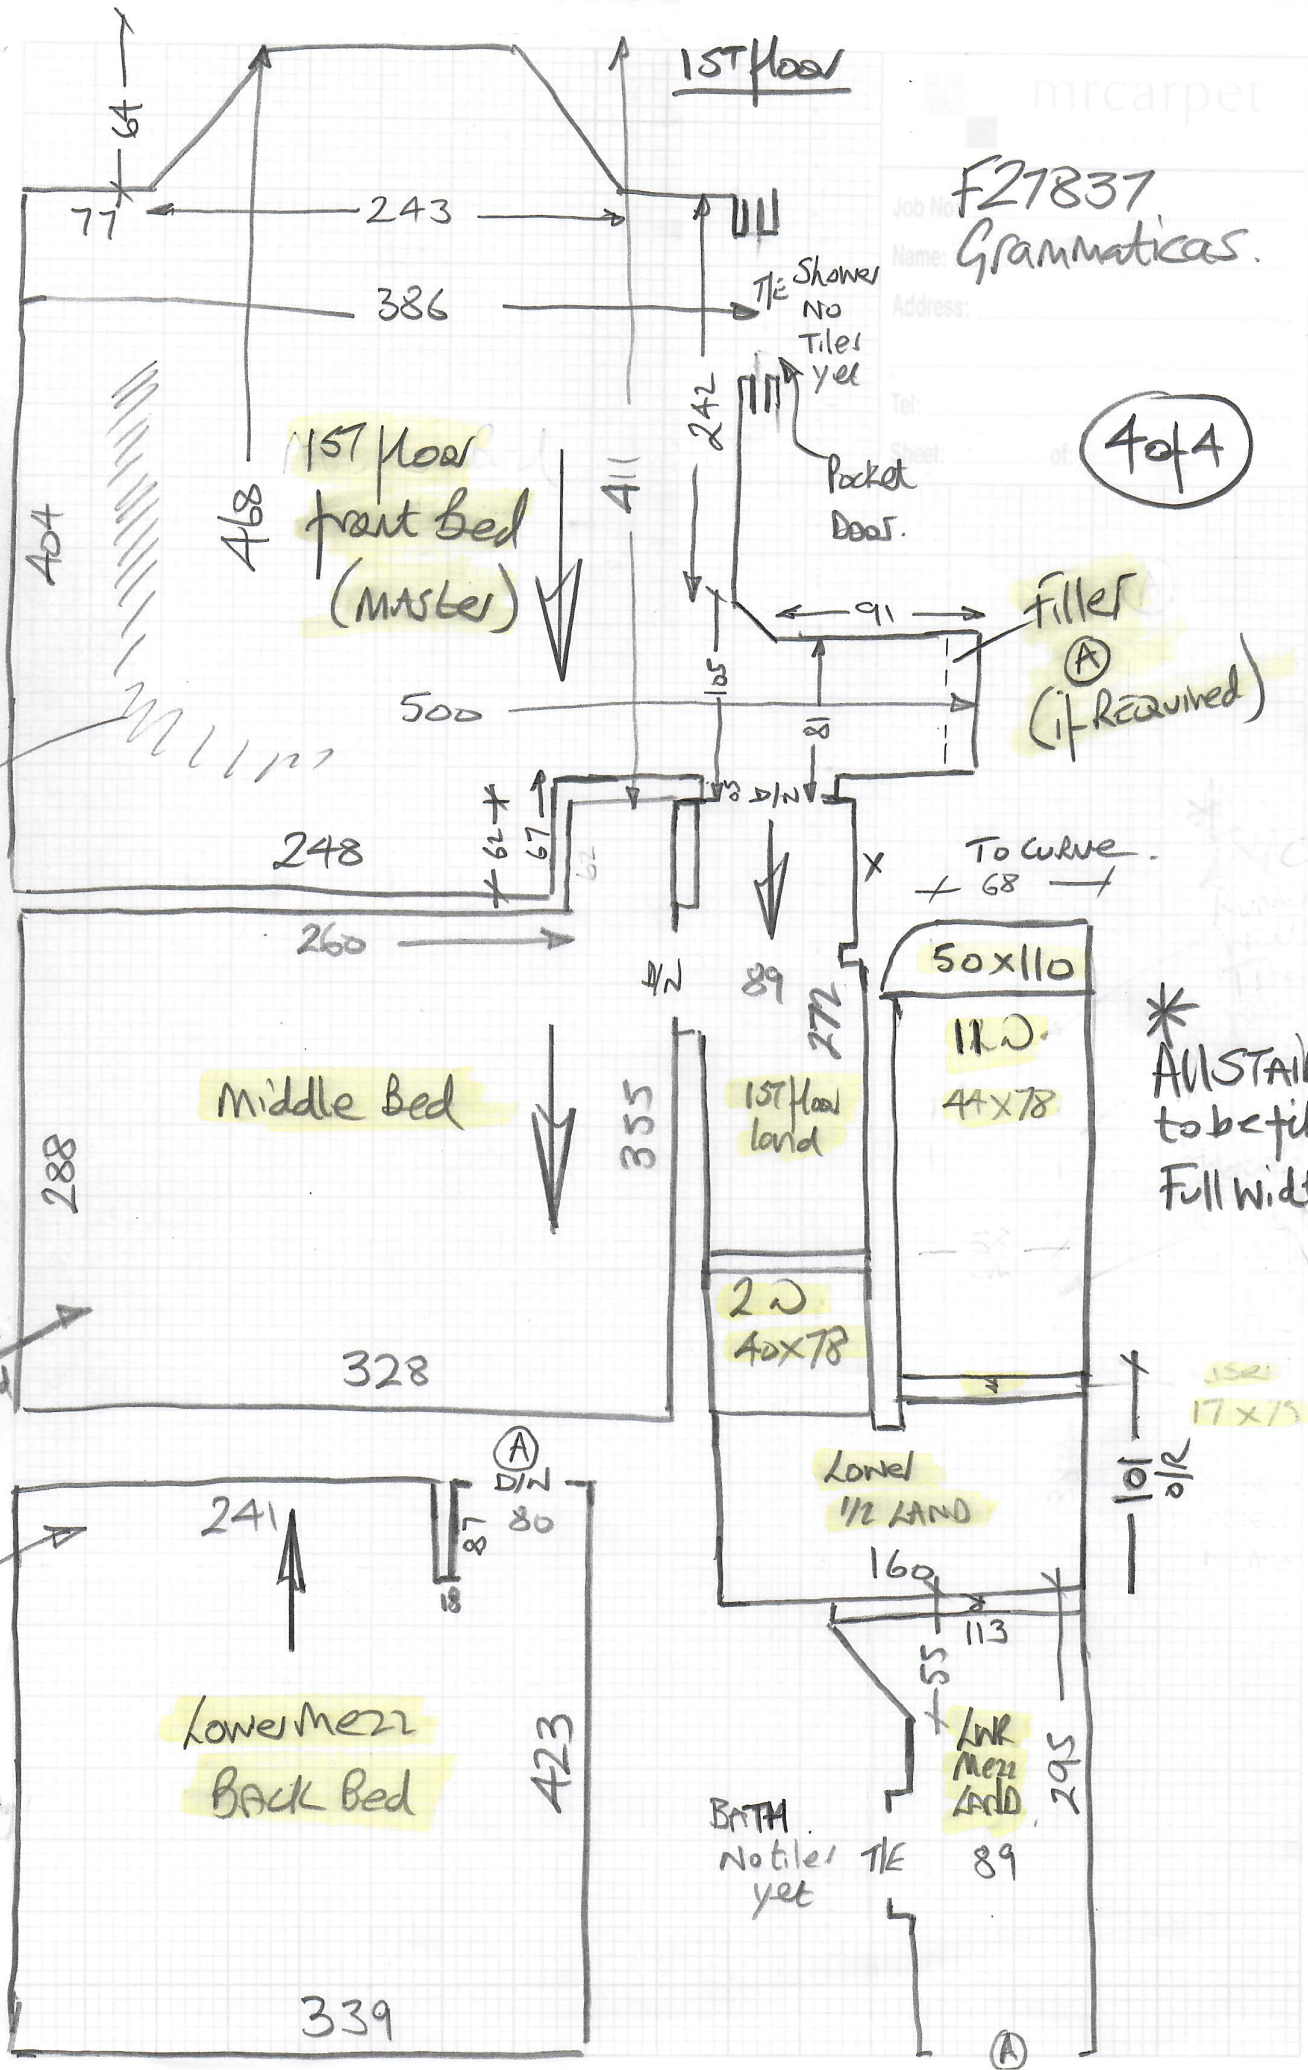 1ST floor
mrcarpet
Job No
F27837
Name:
Grammaticas.
Address:
Tel:
Sheet: of:
4 of 4
64
77
243
386
T/E
Shower
NO
Tiles
yet
242
Pocket
Door.
1ST floor
front Bed
(MASter)
404
468
411
91
Filler
A
(if REQUIRED)
500
105
81
D/N
248
62
67
62
TO CURVE.
68
260
D/N
89
272
50x110
11 D.
44x78
*
All STAI
to be fi
Full wid
Middle Bed
288
355
1ST floor
land
2 D
40x78
328
1 SRI
17 x 75
101
O/R
A
D/N
80
241
87
18
Lower
1/2 LAND
160
113
55
Lower Mezz
BACK Bed
423
LWR
Mezz
LAND.
295
BATH.
No tiles
yet
T/E
89
339
A